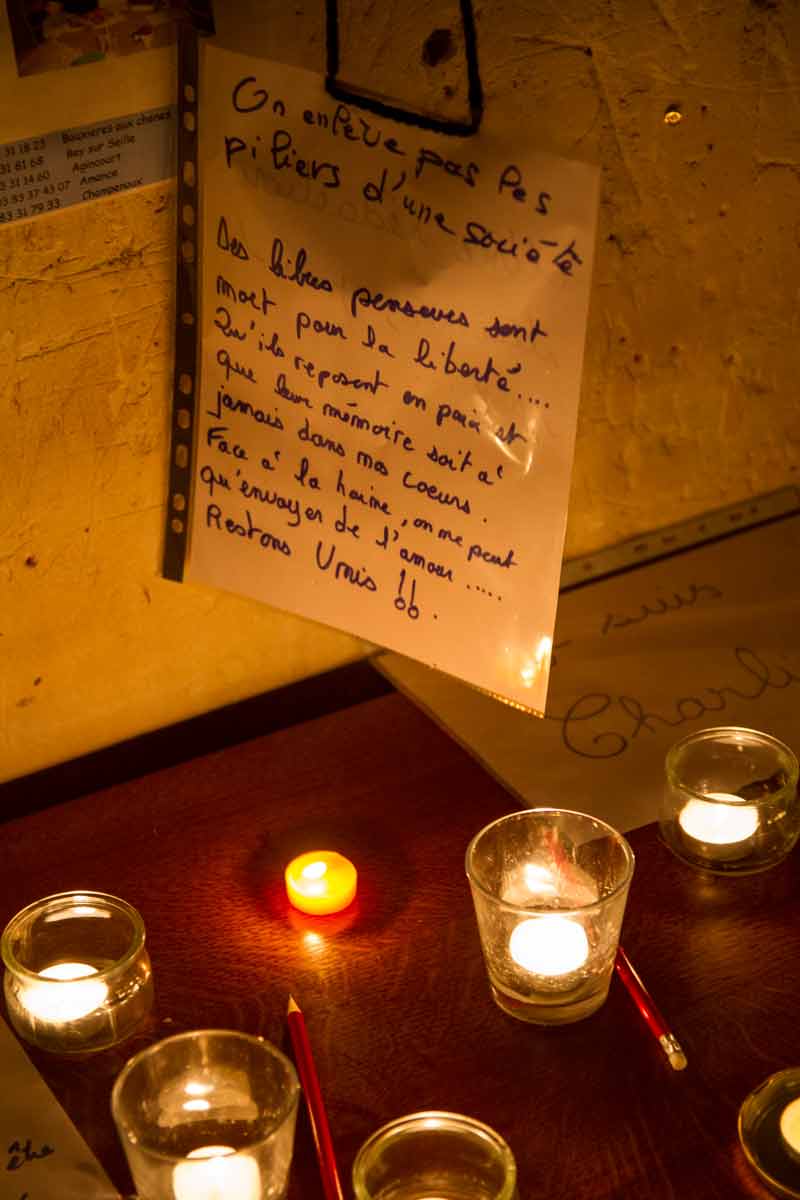 31 18 23 Bouxieres aux chenes
31 81 68 Bey sur Seille
3 31 14 60 Agincourt
03 83 37 43 07 Amance
83 31 79 33 Champenoux
On enlève pas les
piliers d'une société
Des libres penseurs sont
mort pour la liberté....
Qu'ils reposent en paix et
que leur mémoire soit à
jamais dans nos coeurs.
Face à la haine, on ne peut
qu'envoyer de l'amour.....
Restons Unis !!.
suis
Charli